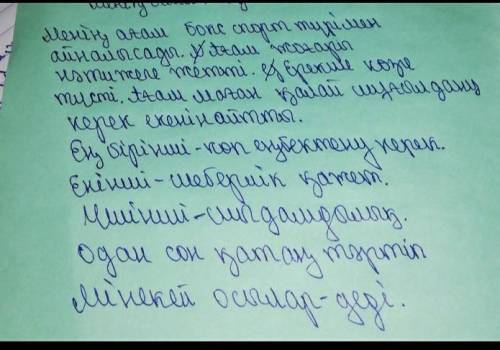 Менің ағам бокс спорт түрімен
айналысады. Ағам жоғары
нәтижеге жетті. Ерекше көзге
түсті. Ағам маған қалай шұғылдану
керек екенін айтты.
Ең бірінші - көп еңбектену керек.
Екінші - шеберлік қажет.
Үшінші - шыдамдылық.
Одан сон қатаң тәртіп
Мінекей осылар - деді.